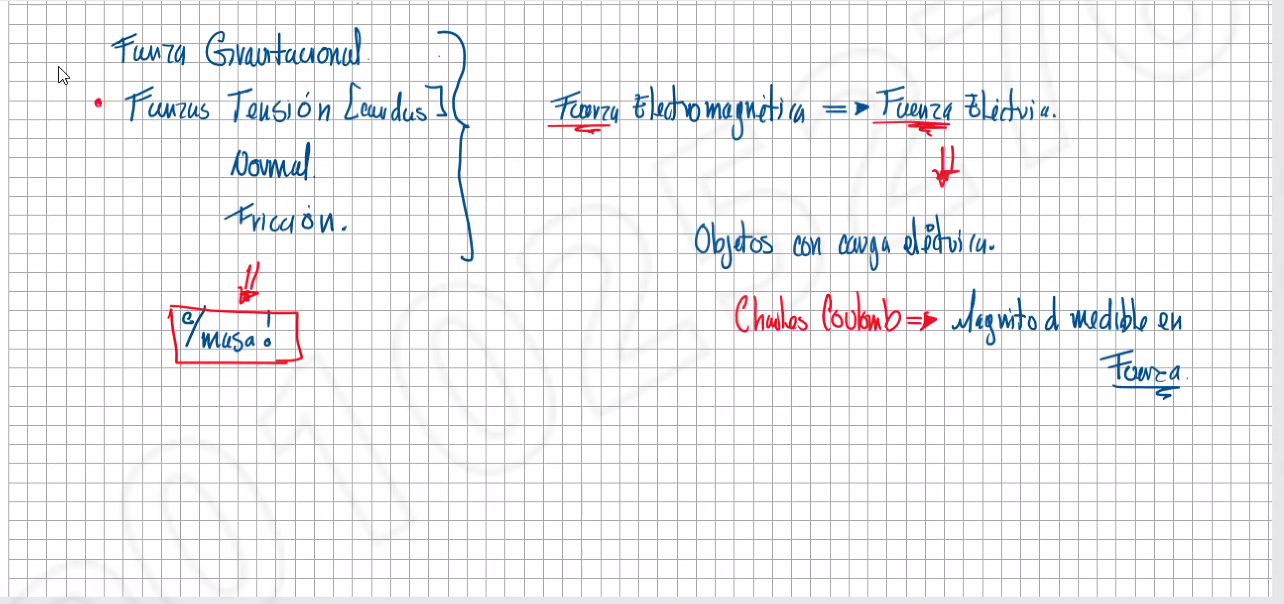 Fuerza Gravitacional
• Fuerzas Tensión [cuerdas]
Normal.
Fricción.
c/masa!
Fuerza Electromagnética => Fuerza Eléctrica.
Objetos con carga eléctrica.
Charles Coulomb => Magnitud medible en
Fuerza.